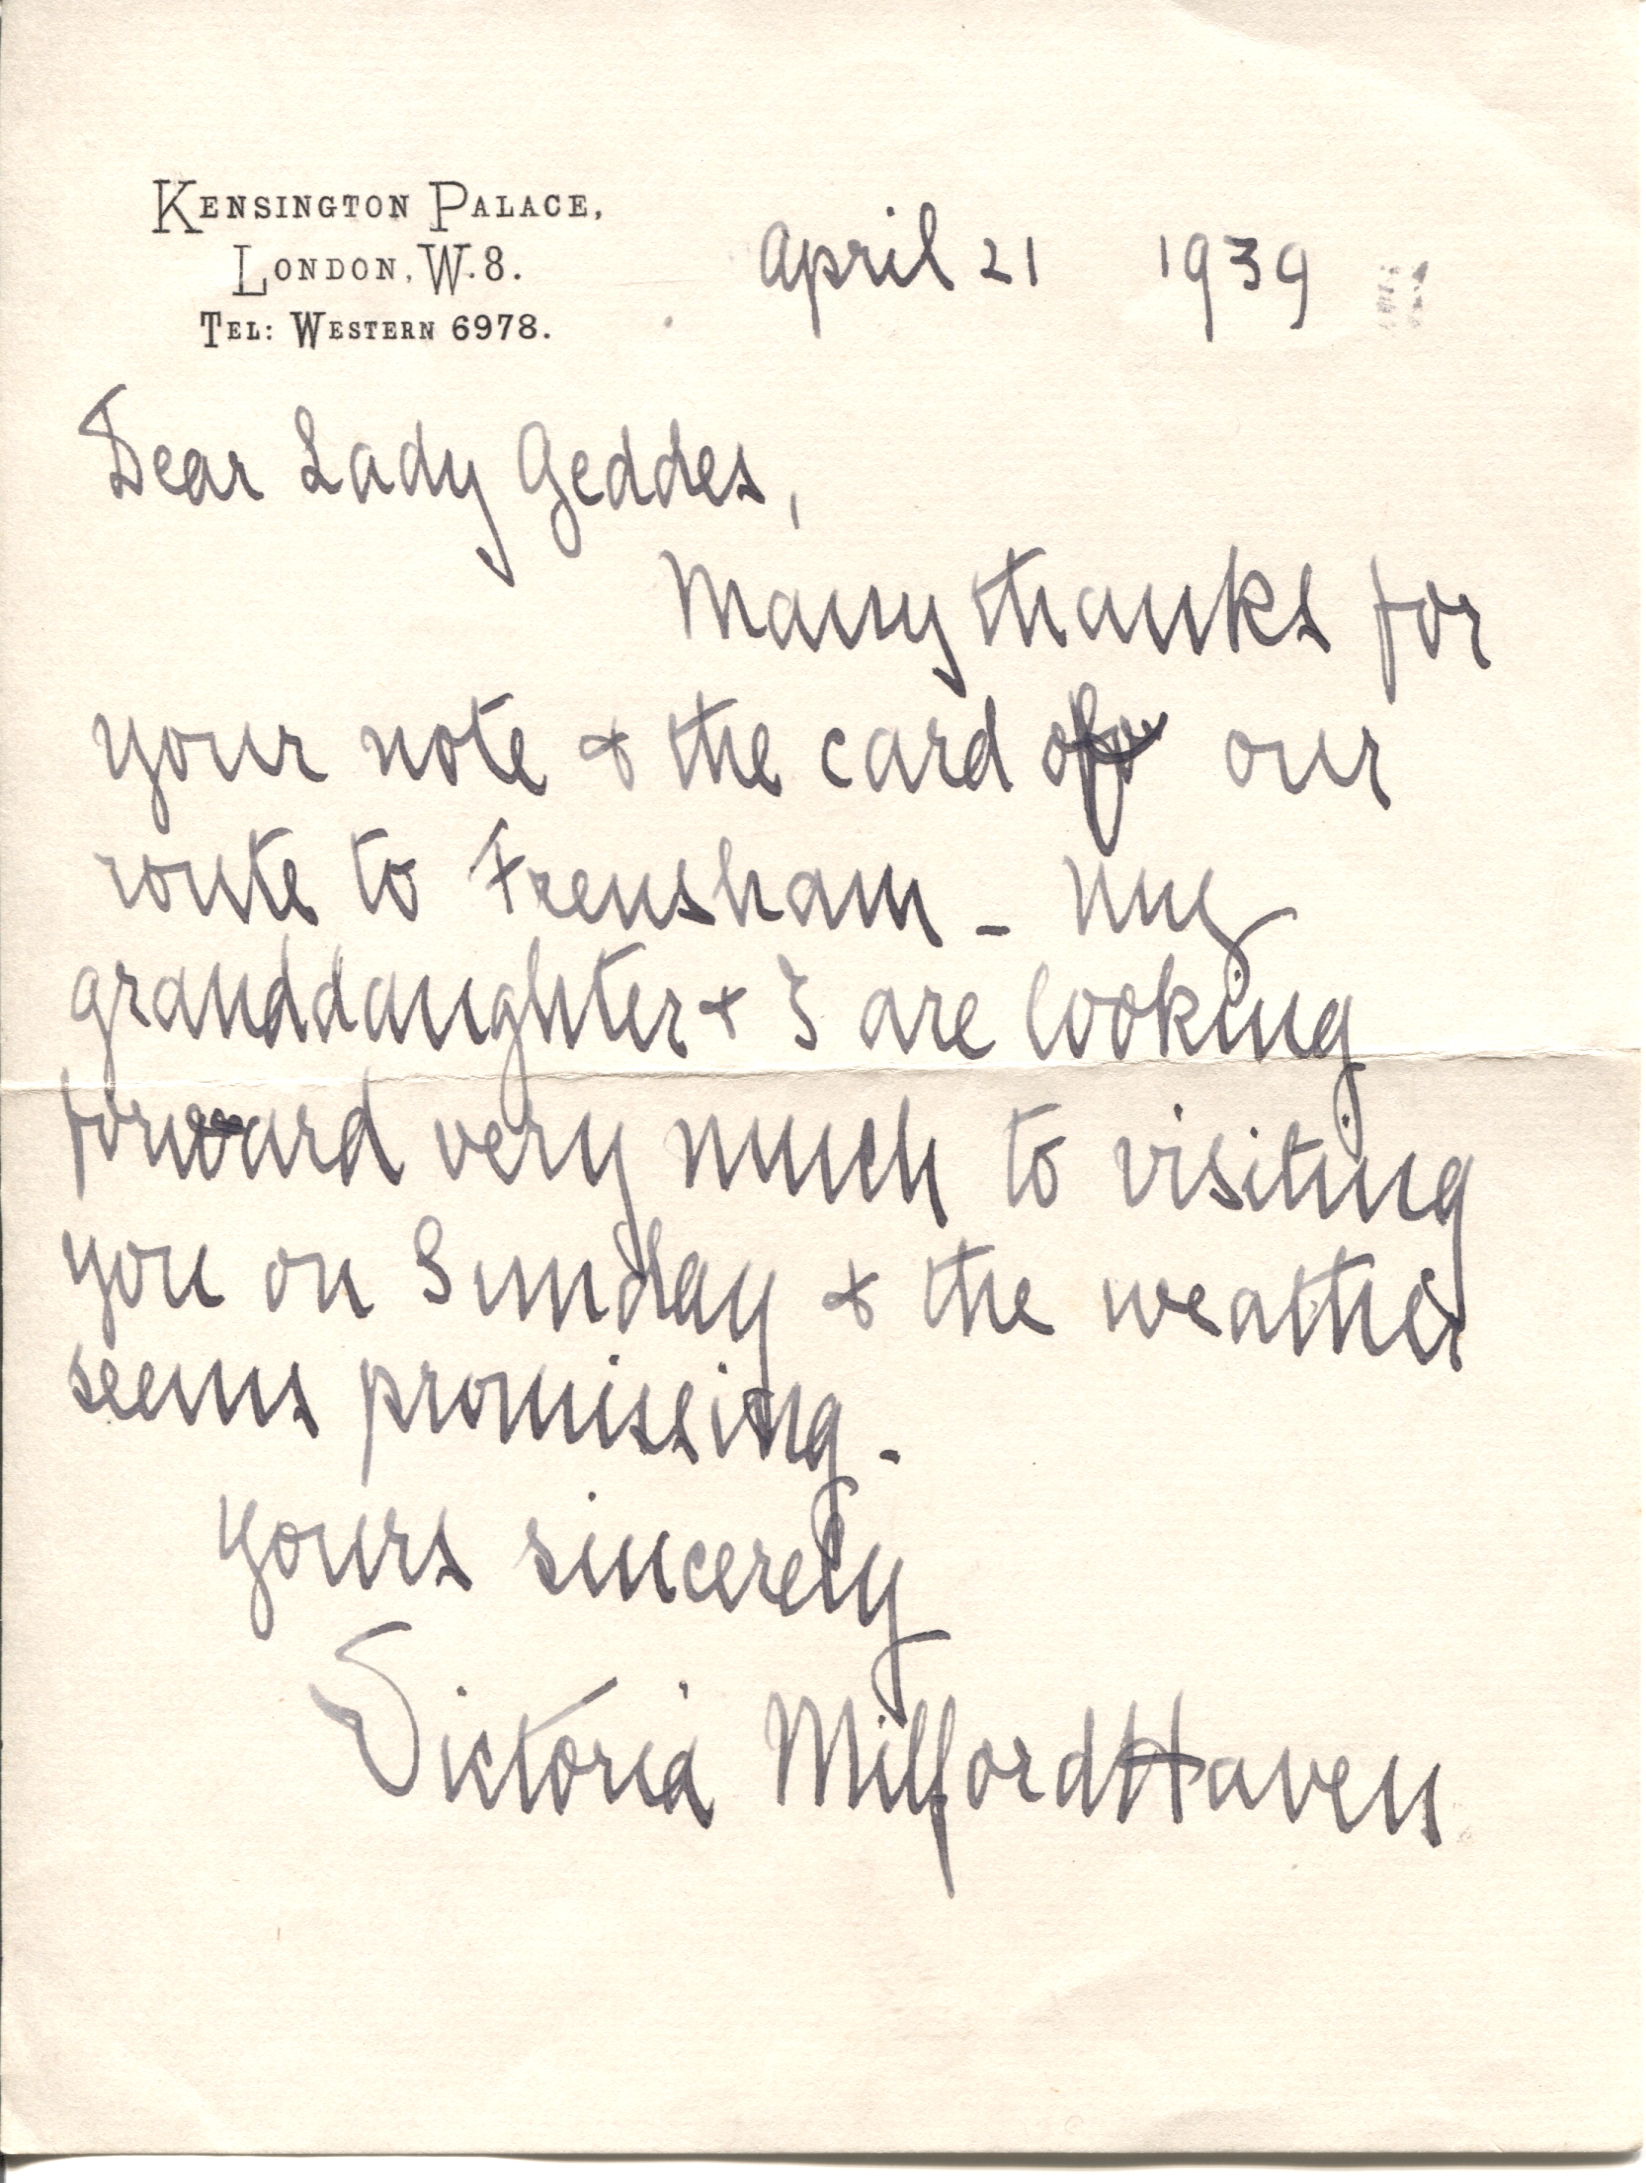 KENSINGTON PALACE,
LONDON, W.8.
TEL: WESTERN 6978.
April 21 1939
Dear Lady Geddes,
Many thanks for
your note & the card of our
route to Frensham - My
granddaughter & I are looking
forward very much to visiting
you on Sunday & the weather
seems promissing -
Yours sincerely
Victoria Milford Haven